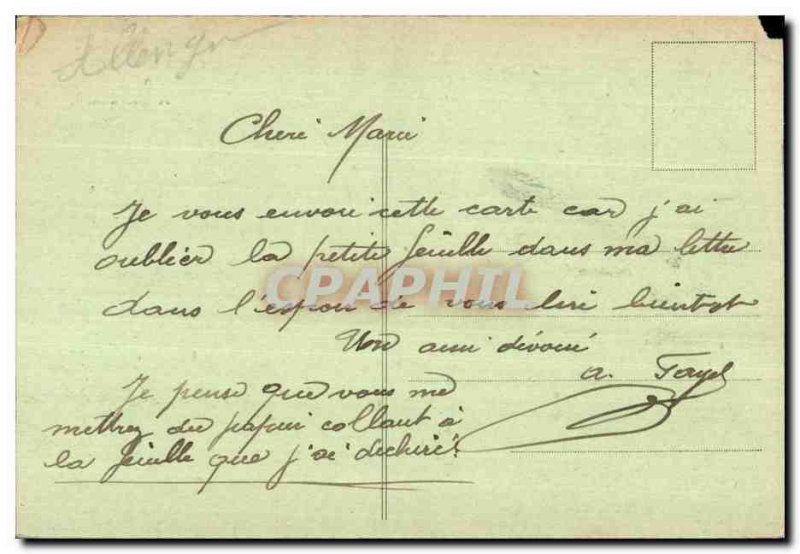 Cheri Marie
Je vous envoi cette carte car j'ai
oublier la petite feuille dans ma lettre
CPAPHIL
dans l'espoir de vous lire bientot
Un ami dévoué
a.
Je pense que vous me
mettrez du papier collant à
la feuille que j'ai dechiré.